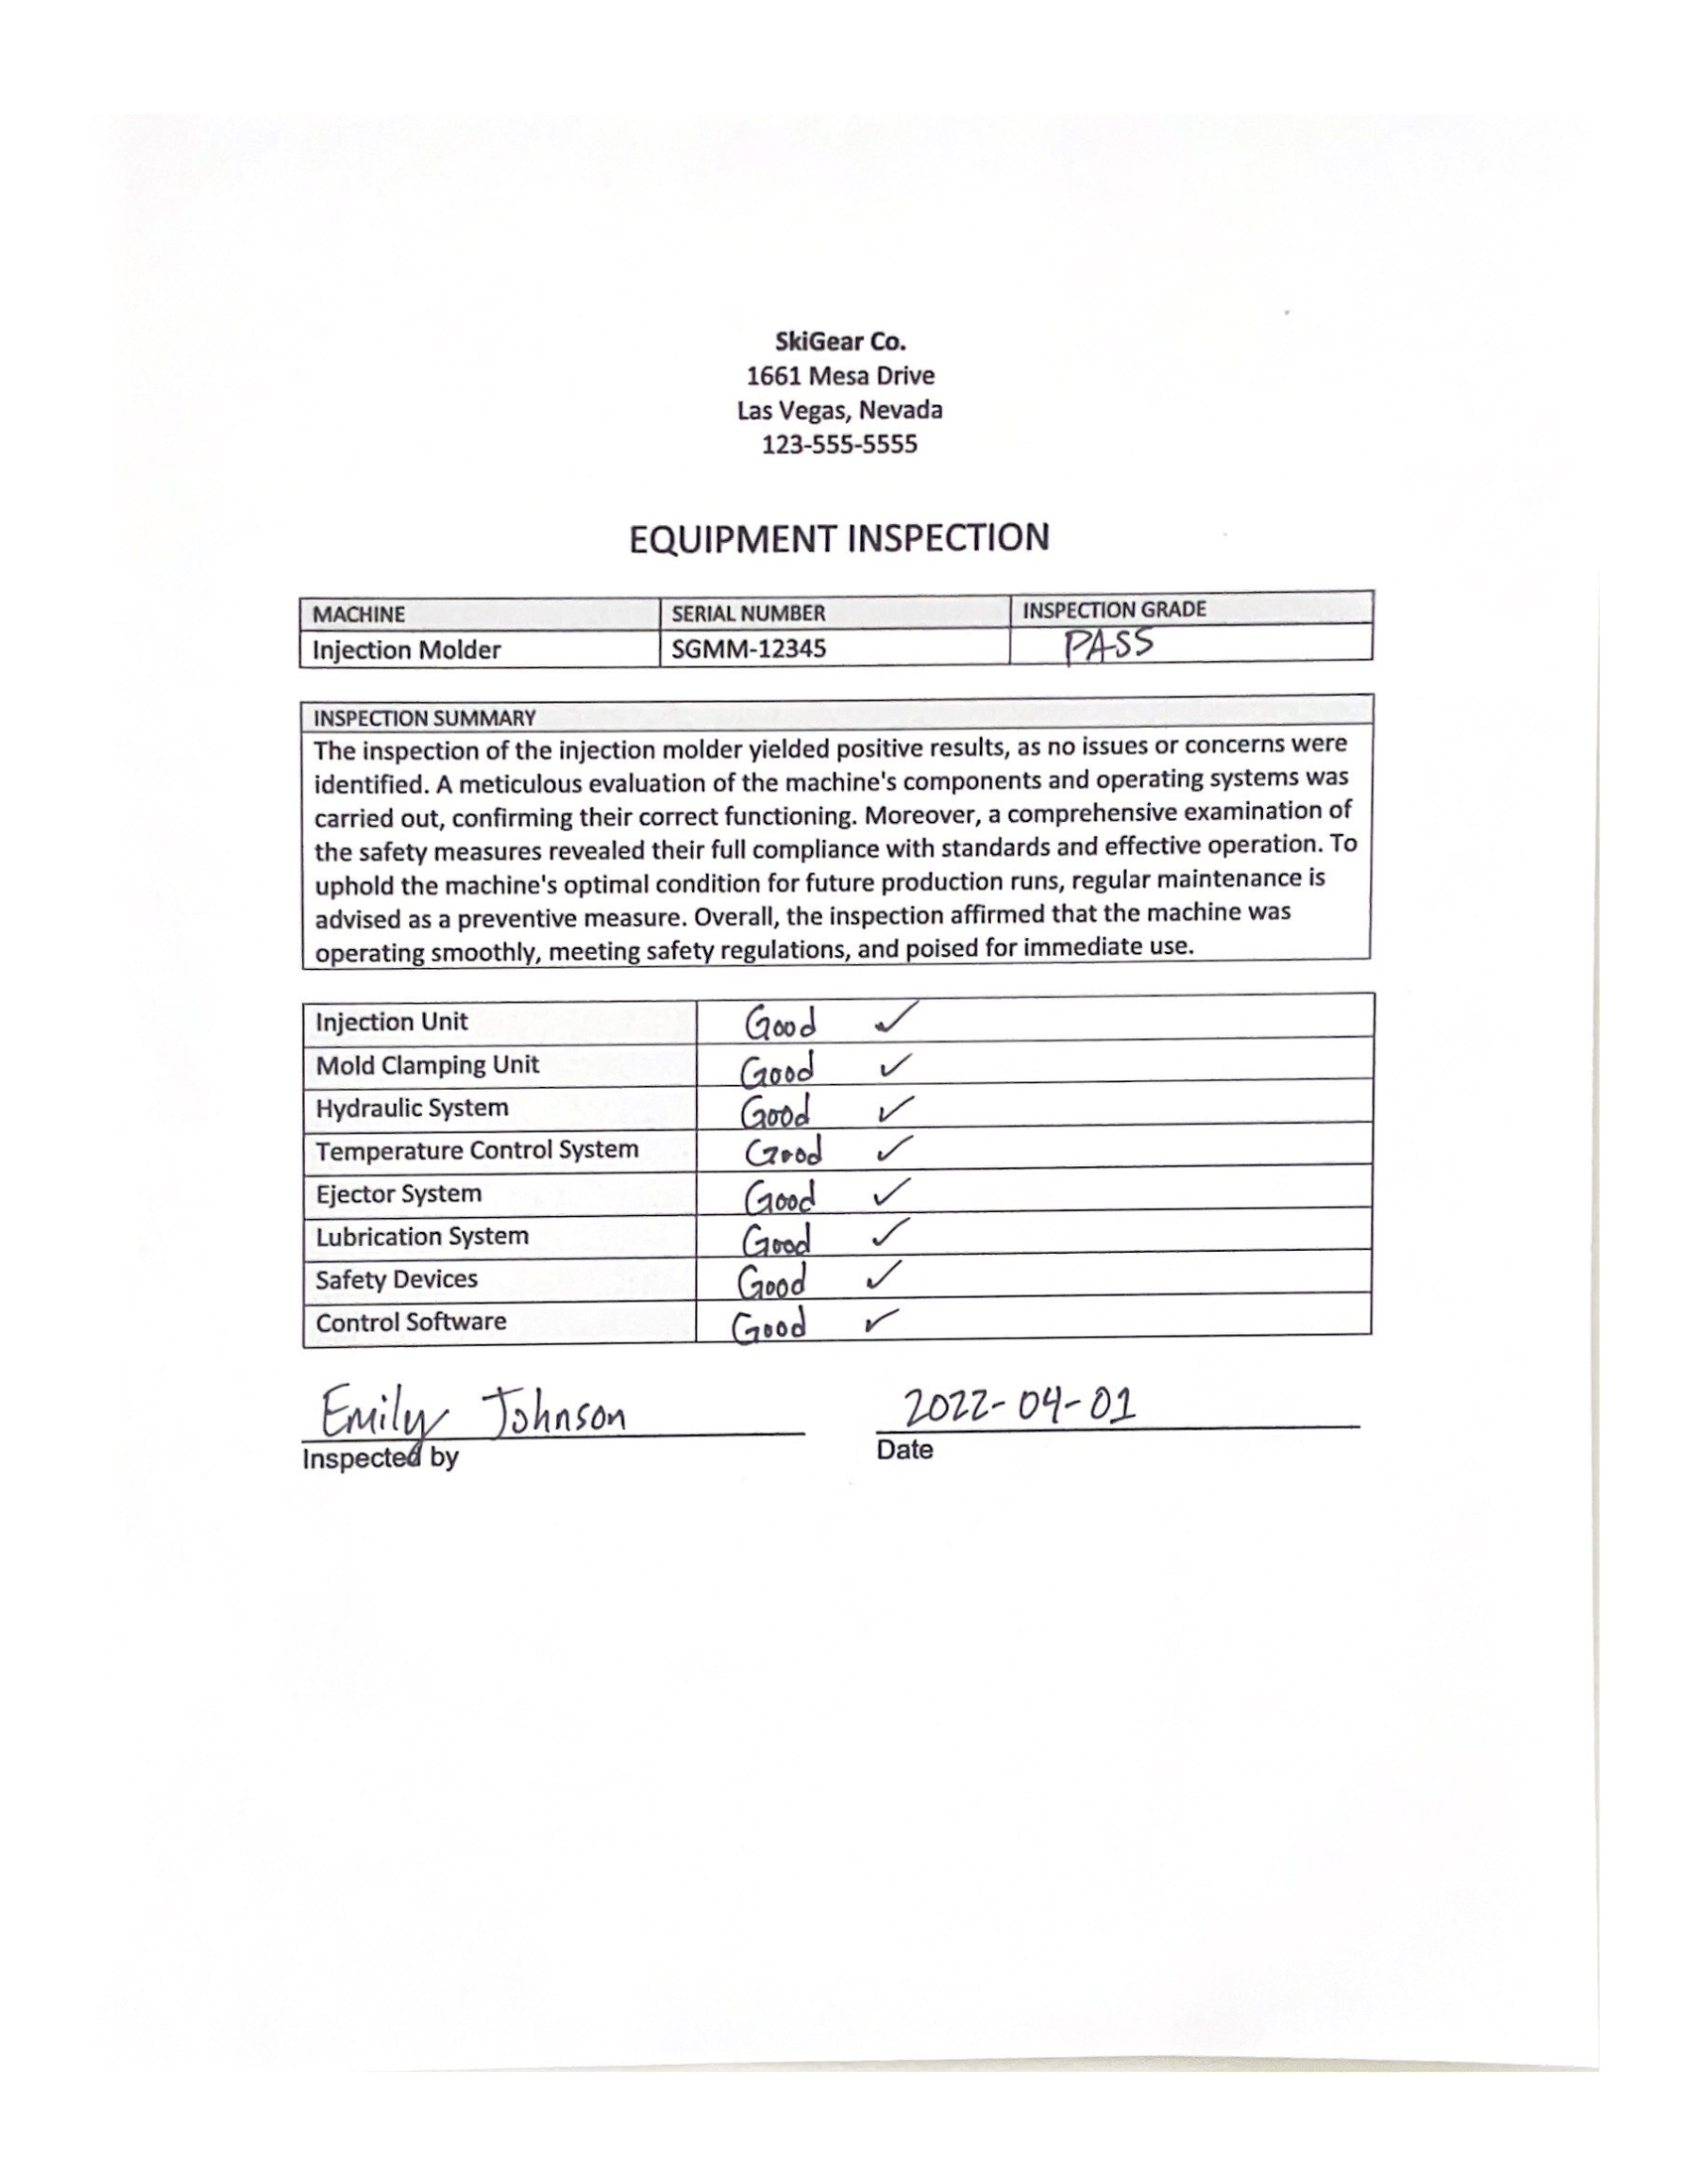 SkiGear Co.
1661 Mesa Drive
Las Vegas, Nevada
123-555-5555
EQUIPMENT INSPECTION
MACHINE SERIAL NUMBER INSPECTION GRADE
Injection Molder SGMM-12345 PASS
INSPECTION SUMMARY
The inspection of the injection molder yielded positive results, as no issues or concerns were
identified. A meticulous evaluation of the machine's components and operating systems was
carried out, confirming their correct functioning. Moreover, a comprehensive examination of
the safety measures revealed their full compliance with standards and effective operation. To
uphold the machine's optimal condition for future production runs, regular maintenance is
advised as a preventive measure. Overall, the inspection affirmed that the machine was
operating smoothly, meeting safety regulations, and poised for immediate use.
Injection Unit Good ✓
Mold Clamping Unit Good ✓
Hydraulic System Good ✓
Temperature Control System Good ✓
Ejector System Good ✓
Lubrication System Good ✓
Safety Devices Good ✓
Control Software Good ✓
Emily Johnson 2022-04-01
Inspected by Date